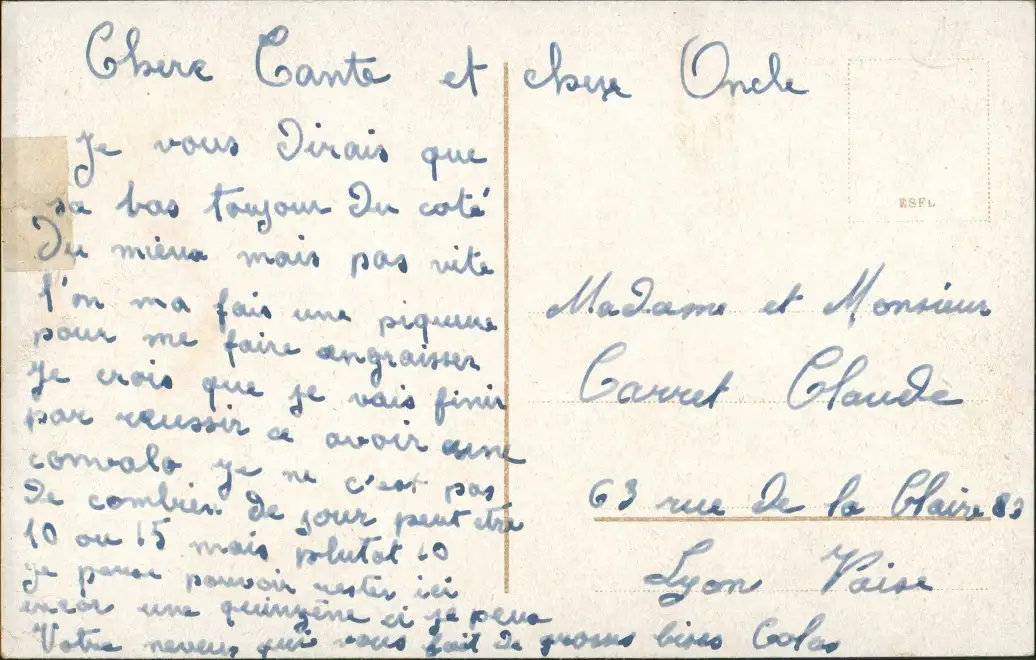 Chere Tante et chere Oncle
Je vous Dirais que
sa vas toujour Du coté
Du mieux mais pas vite
l'on ma fais une piquure
pour me faire angraisser
Je crois que je vais finir
par reussir a avoir une
convalo je ne c'est pas
De combien De jour peut etre
10 ou 15 mais plutot 10
je pense pouvoir rester ici
encor une quinzène si je peux
Votre neveux qui vous fait De groses bises Colas
ESFL
Madame et Monsieur
Carret Claude
63 rue De la Claire 83
Lyon Vaise